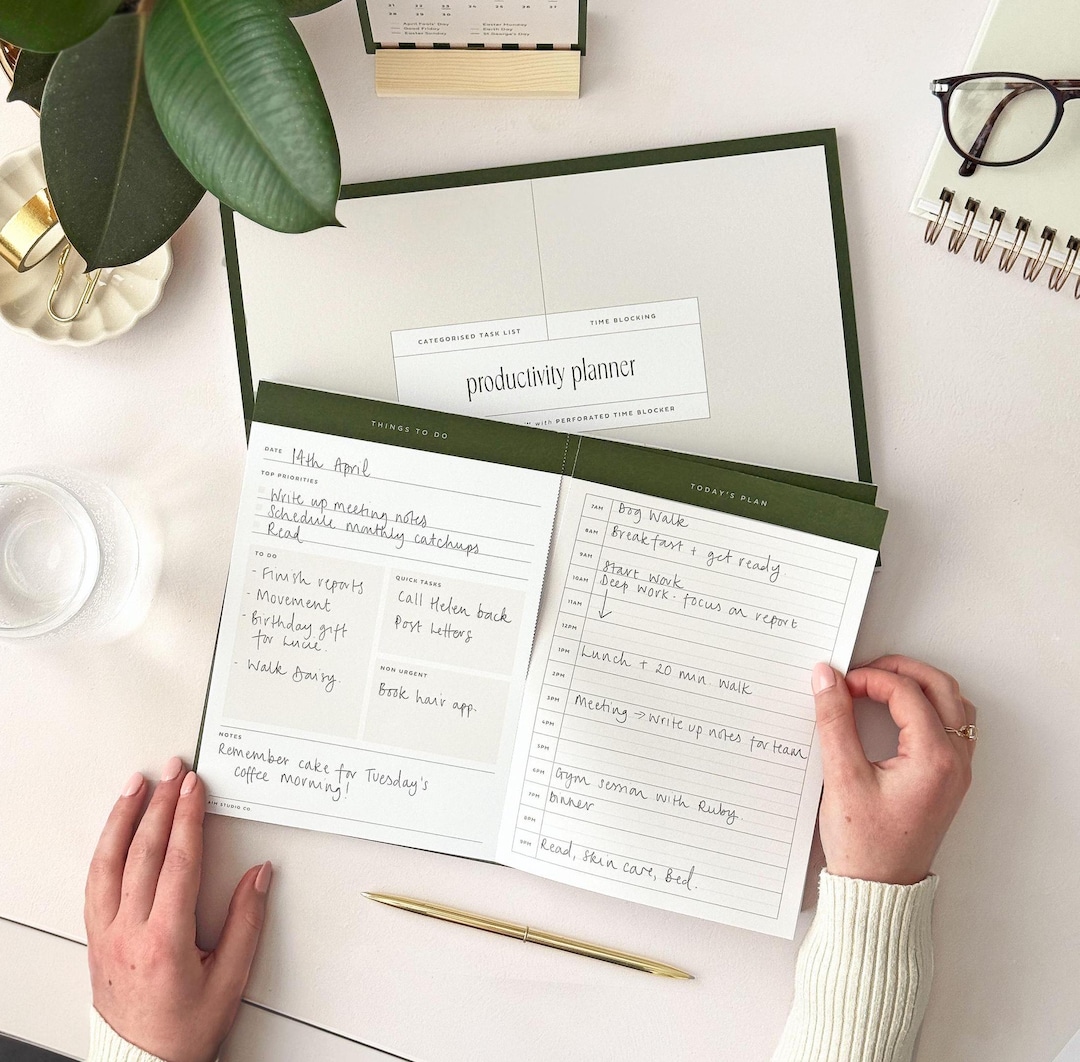 April Fools' Day
Good Friday
Easter Sunday
Easter Monday
Earth Day
St George's Day
CATEGORISED TASK LIST
TIME BLOCKING
productivity planner
with PERFORATED TIME BLOCKER
THINGS TO DO
DATE 14th April
TOP PRIORITIES
Write up meeting notes
Schedule monthly catchups
Read
TO DO
- Finish reports
- Movement
- Birthday gift
for Lucie.
- Walk Daisy.
QUICK TASKS
Call Helen back
Post letters
NON URGENT
Book hair app.
NOTES
Remember cake for Tuesday's
coffee morning!
STUDIO CO
TODAY'S PLAN
7AM Dog Walk
8AM Breakfast + get ready
9AM Start work
10AM Deep work - focus on report
11AM ↓
12PM
1PM Lunch + 20 min. walk
2PM
3PM Meeting → write up notes for team
4PM
5PM
6PM Gym session with Ruby.
7PM Dinner
8PM
9PM Read, skin care, Bed.